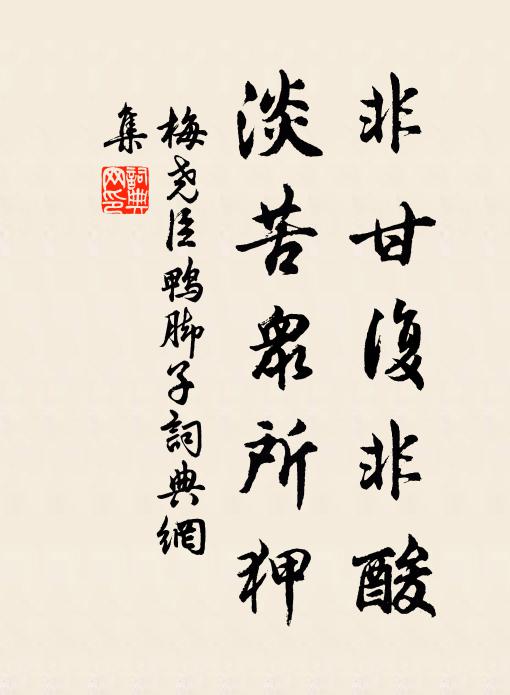 非甘復非酸
淡苦衆所狎
梅堯臣鴨脚子詞典網
集
詞典
网印